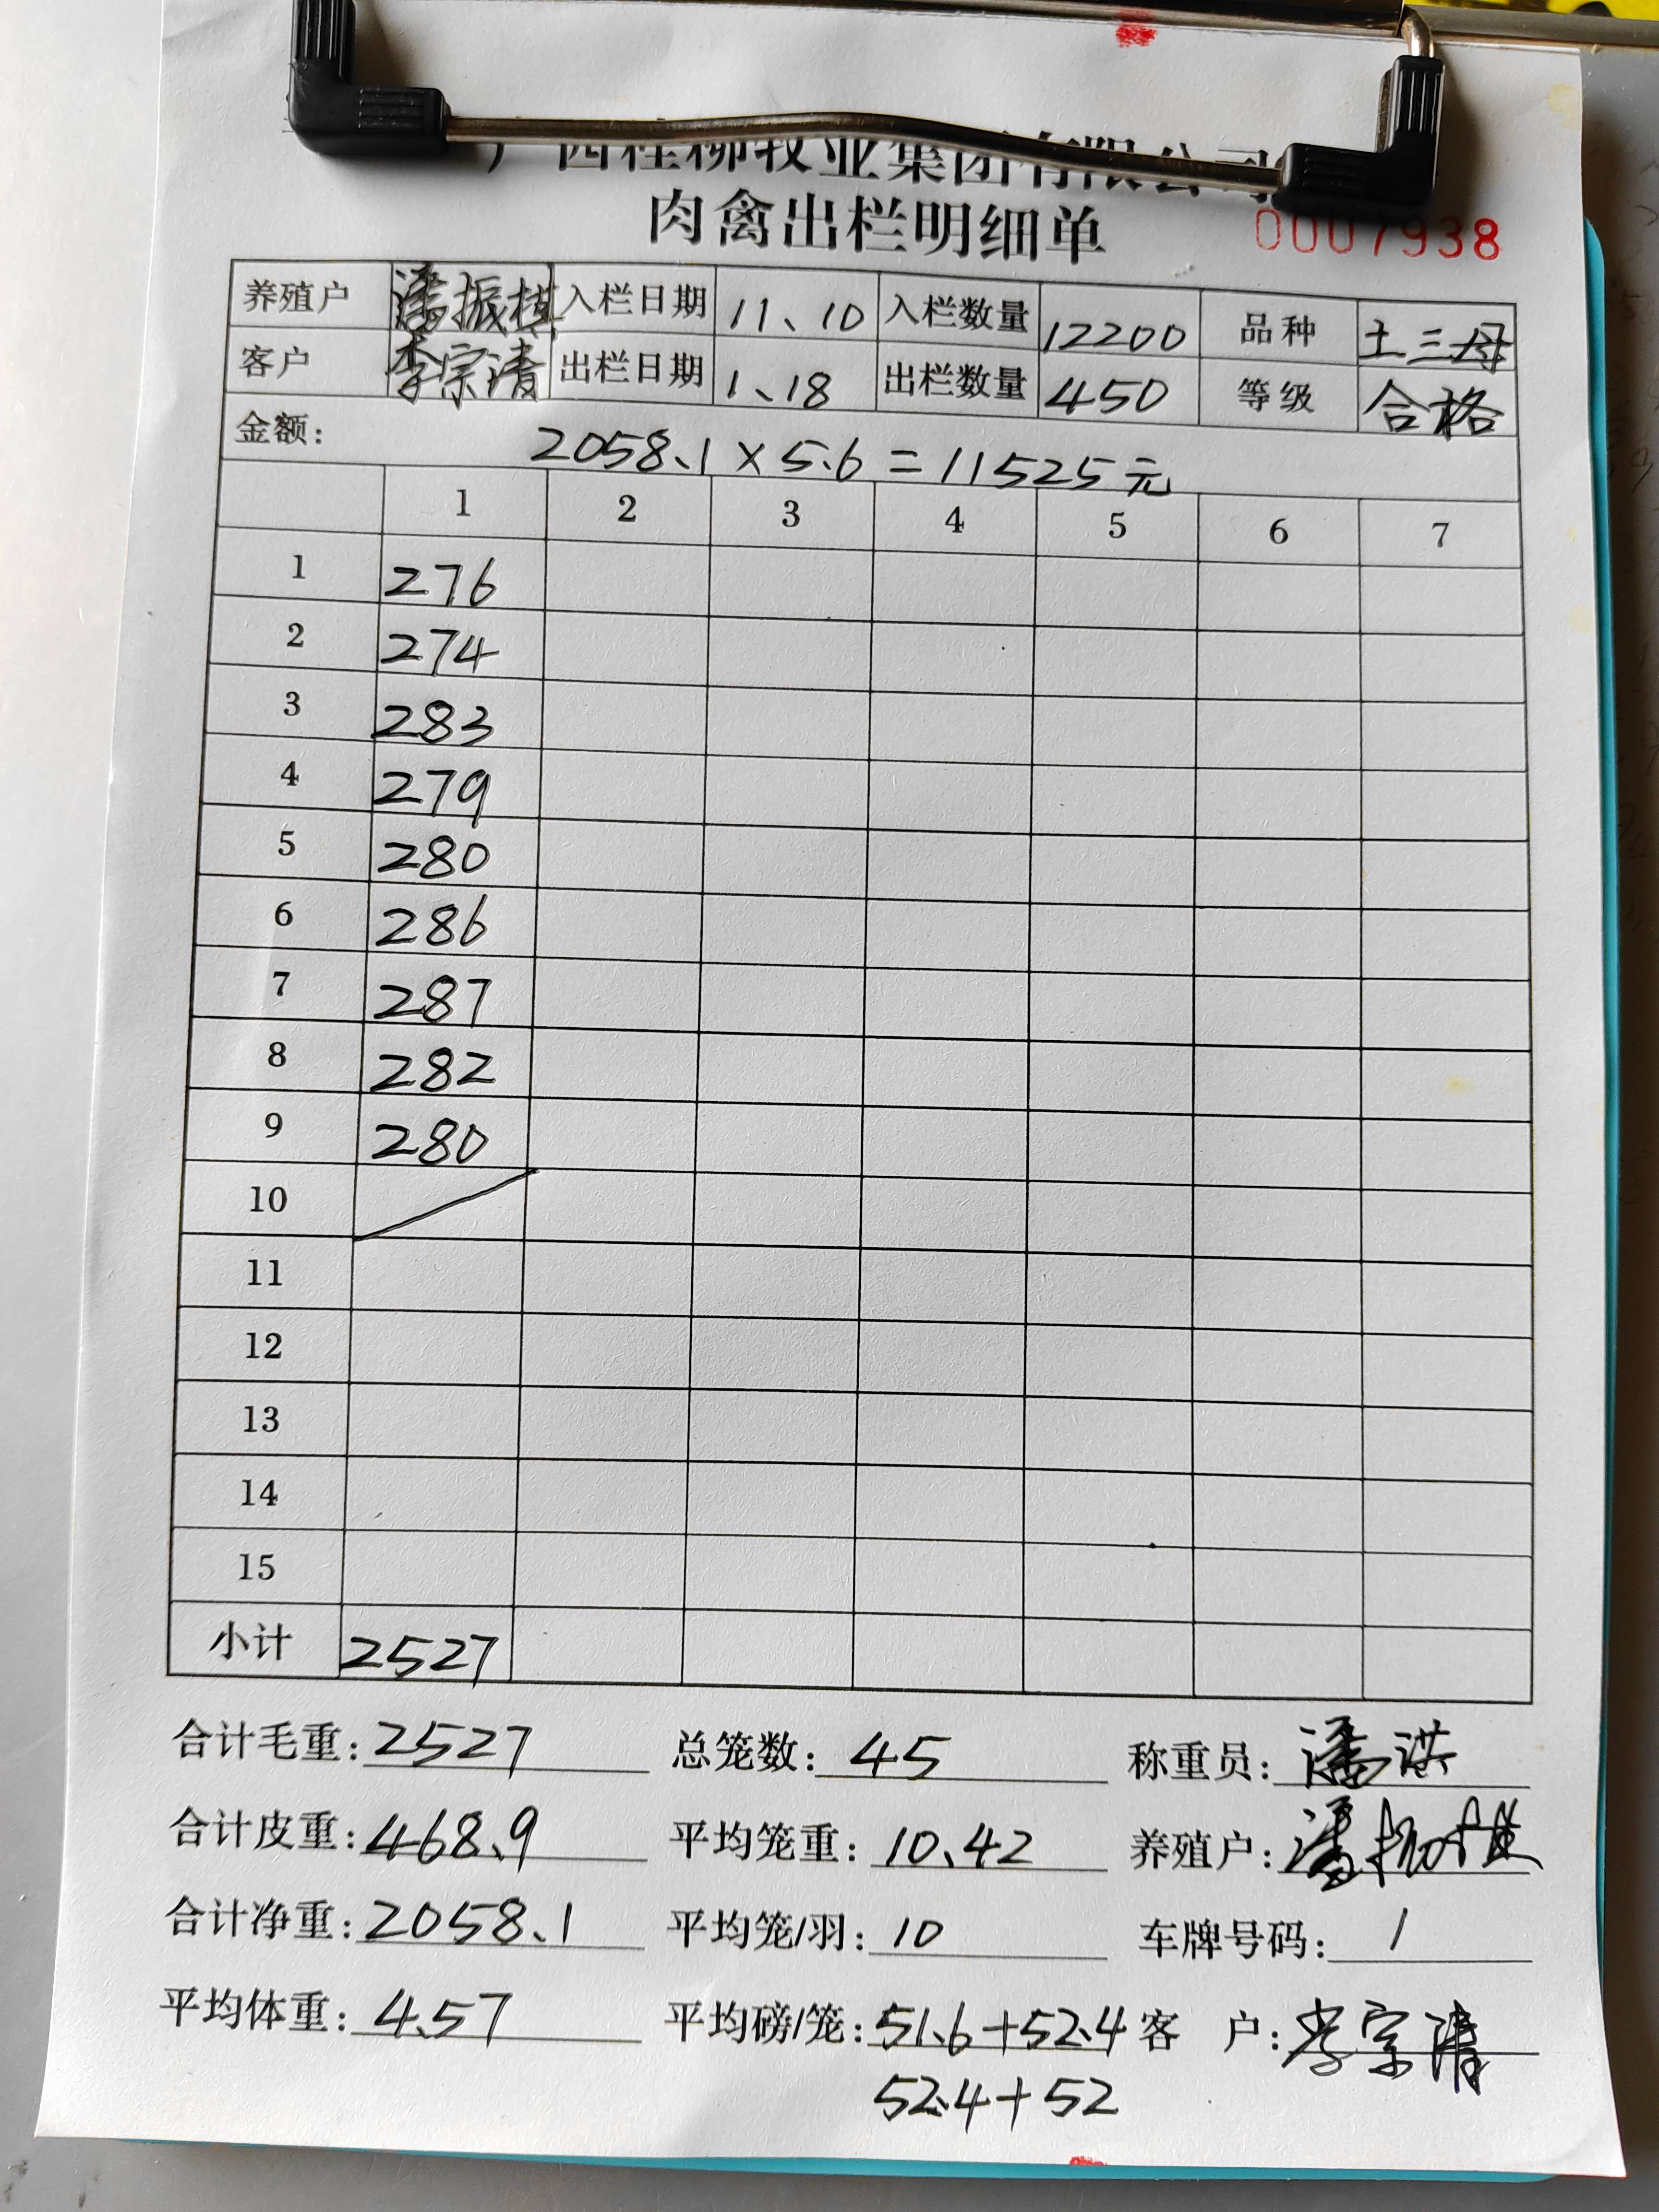 广西桂柳牧业集团有限公司
肉禽出栏明细单
0007938
养殖户 潘振棋 入栏日期 11、10 入栏数量 12200 品种 土三母
客户 李宗清 出栏日期 1、18 出栏数量 450 等级 合格
金额: 2058.1×5.6=11525元
1 2 3 4 5 6 7
1 276
2 274
3 283
4 279
5 280
6 286
7 287
8 282
9 280
10
11
12
13
14
15
小计 2527
合计毛重: 2527 总笼数: 45 称重员: 潘洪
合计皮重: 468.9 平均笼重: 10.42 养殖户: 潘振棋
合计净重: 2058.1 平均笼/羽: 10 车牌号码: /
平均体重: 4.57 平均磅/笼: 51.6+52.4 客 户: 李宗清
52.4+52